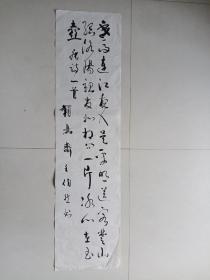 寒雨连江夜入吴平明送客楚山
孤洛陽親友如相问一片冰心在玉
壶 唐诗一首